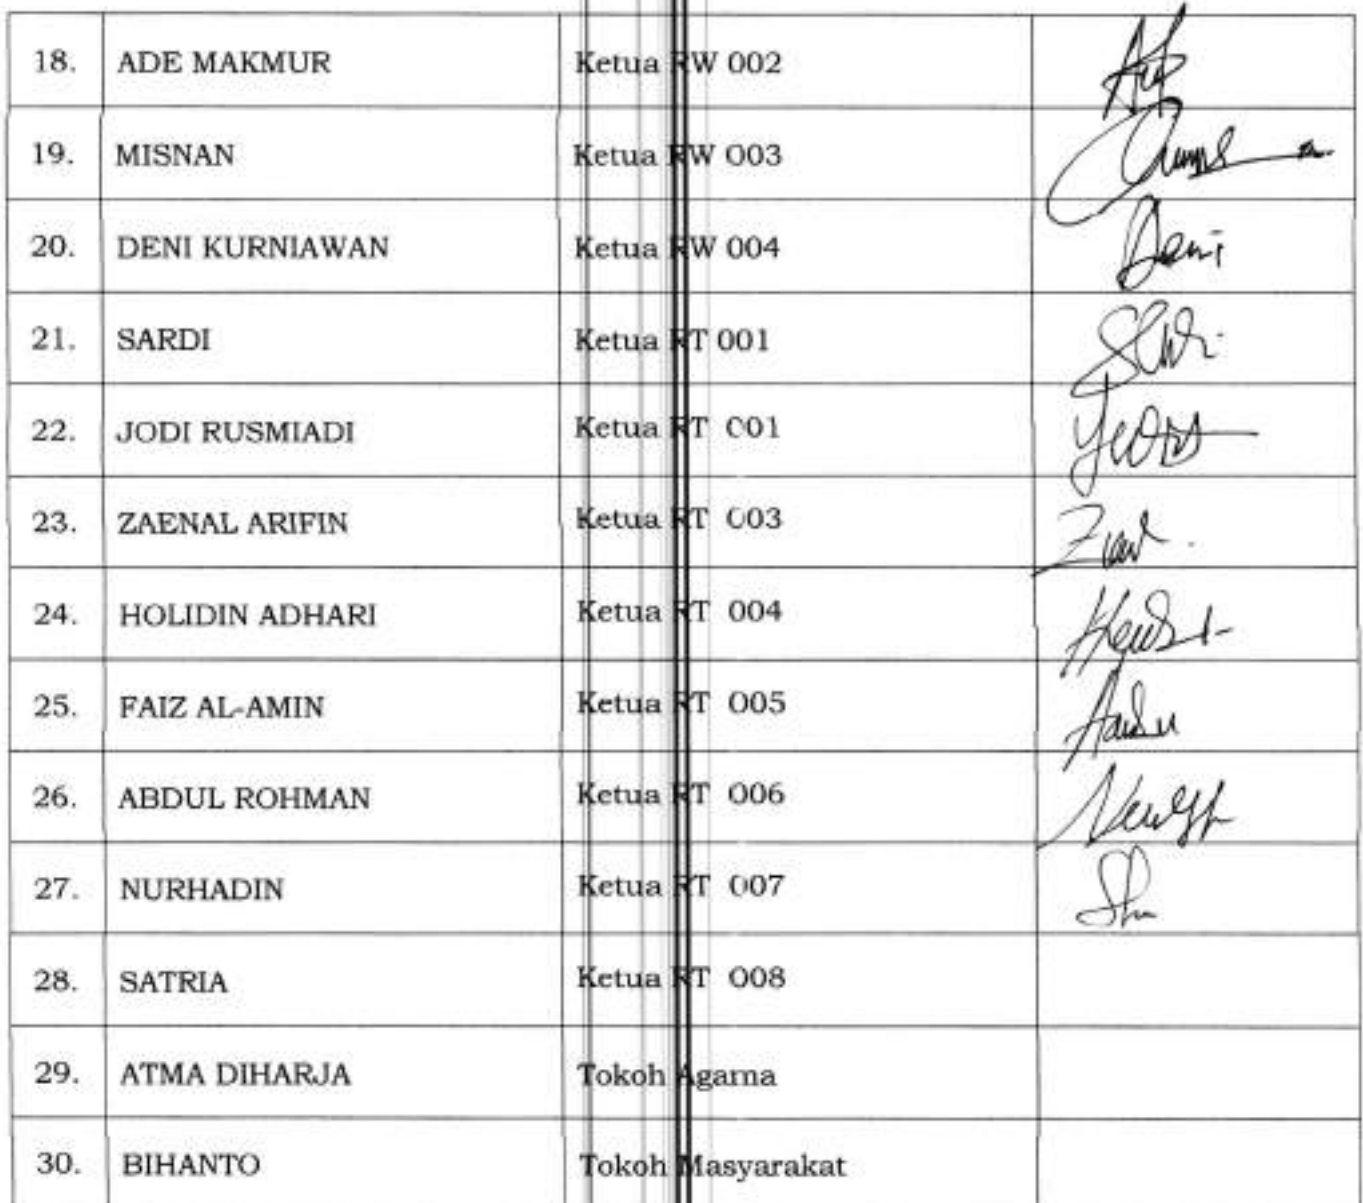 18. ADE MAKMUR Ketua RW 002
19. MISNAN Ketua RW 003
20. DENI KURNIAWAN Ketua RW 004 Deni
21. SARDI Ketua RT 001
22. JODI RUSMIADI Ketua RT 001
23. ZAENAL ARIFIN Ketua RT 003
24. HOLIDIN ADHARI Ketua RT 004
25. FAIZ AL-AMIN Ketua RT 005
26. ABDUL ROHMAN Ketua RT 006
27. NURHADIN Ketua RT 007
28. SATRIA Ketua RT 008
29. ATMA DIHARJA Tokoh Agama
30. BIHANTO Tokoh Masyarakat